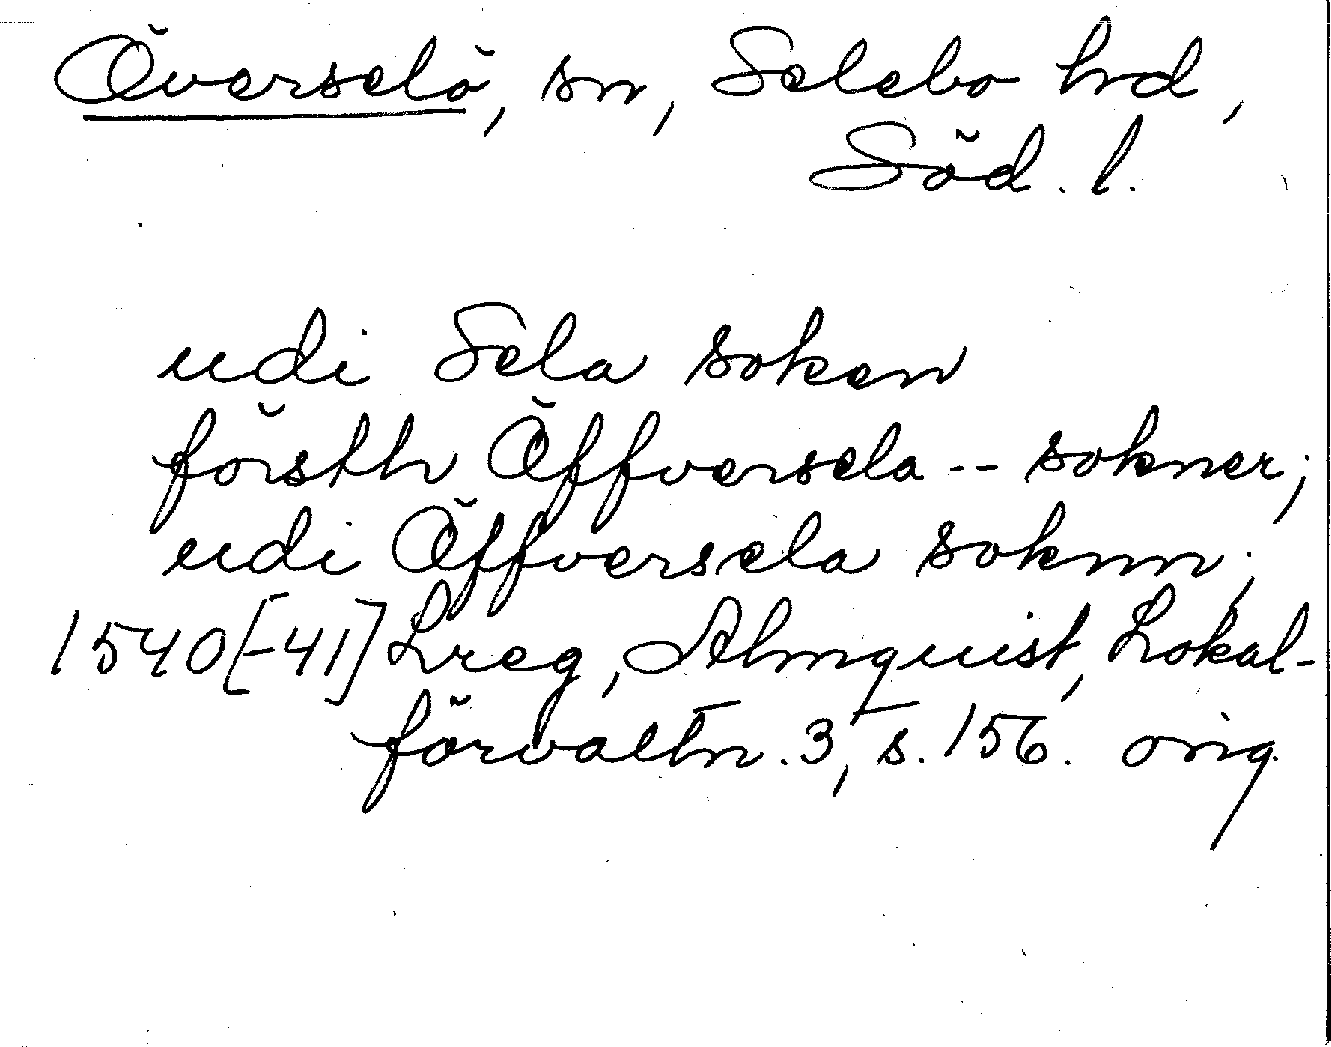 Överselö, sn, Selebo hd,
Söd. l.
udi Sela soken
försth Öffversela -- sokner;
udi Öffversela soknn;
1540[-41] Lreg, Almquist, Lokal-
förvaltn. 3, s. 156. orig.